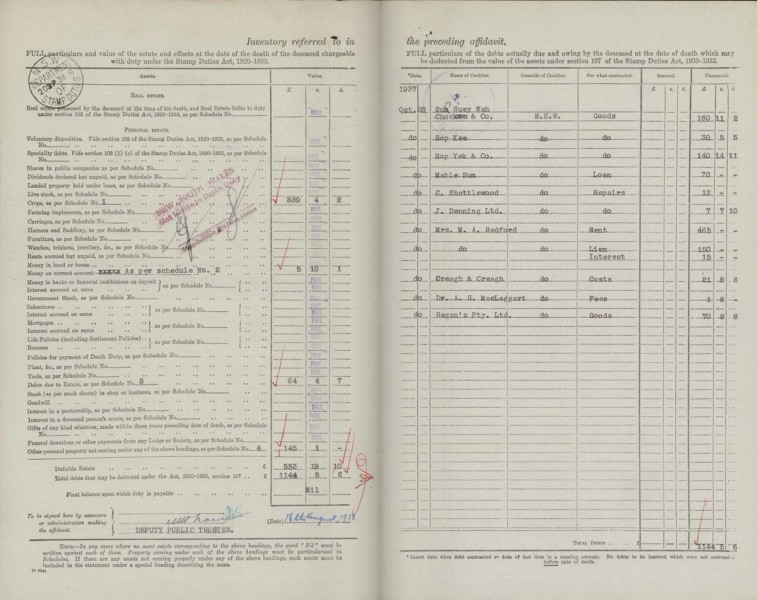 Inventory referred to in
FULL particulars and value of the estate and effects at the date of the death of the deceased chargeable
with duty under the Stamp Duties Act, 1920-1933.
N.S.W. DEPARTMENT OF STAMP DUTIES
Assets. Value.
£ s. d.
REAL ESTATE.
Real estate possessed by the deceased at the time of his death, and Real Estate liable to duty
under section 102 of the Stamp Duties Act, 1920-1933, as per Schedule No. Nil
PERSONAL ESTATE.
Voluntary disposition. Vide section 102 of the Stamp Duties Act, 1920-1933, as per Schedule
No.
Specialty debts. Vide section 103 (1) (a) of the Stamp Duties Act, 1920-1933, as per Schedule
No.
Shares in public companies as per Schedule No.
Dividends declared but unpaid, as per Schedule No.
Landed property held under lease, as per Schedule No.
Live stock, as per Schedule No.
Crops, as per Schedule No. 1 339 4 2
Farming implements, as per Schedule No.
Carriages, as per Schedule No.
Harness and Saddlery, as per Schedule No.
Furniture, as per Schedule No.
Watches, trinkets, jewellery, &c., as per Schedule No.
Rents accrued but unpaid, as per Schedule No.
Money in hand or house
Money on current account As per schedule No. 2 5 10 1
Money in banks or financial institutions on deposit
Interest accrued on same as per Schedule No.
Government Stock, as per Schedule No.
Debentures
Interest accrued on same as per Schedule No.
Mortgages
Interest accrued on same as per Schedule No.
Life Policies (including Settlement Policies)
Bonuses as per Schedule No.
Policies for payment of Death Duty, as per Schedule No.
Plant, &c., as per Schedule No.
Tools, as per Schedule No.
Debts due to Estate, as per Schedule No. 3 64 4 7
Stock (as per stock sheets) in shop or business, as per Schedule No.
Goodwill
Interest in a partnership, as per Schedule No.
Interest in a deceased person's estate, as per Schedule No.
Gifts of any kind whatever, made within three years preceding date of death, as per Schedule
No.
Funeral donations or other payments from any Lodge or Society, as per Schedule No.
Other personal property not coming under any of the above headings, as per Schedule No. 4 145 1 -
Dutiable Estate £ 553 19 10
Total debts that may be deducted under the Act, 1920-1933, section 107 £ 1144 5 6
Final balance upon which duty is payable Nil
To be signed here by executors
or administrators making
the affidavit
(Date) 18th August, 1938
DEPUTY PUBLIC TRUSTEE.
NOTE.—In any case where no asset exists corresponding to the above headings, the word "Nil" must be
written against each of them. Property coming under each of the above headings must be particularized in
Schedules. If there are any assets not coming properly under any of the above headings, such assets must be
included in the statement under a special heading describing the same.
the preceding affidavit.
FULL particulars of the debts actually due and owing by the deceased at date of death which may
be deducted from the value of the assets under section 107 of the Stamp Duties Act, 1920-1933.
*Date. Name of Creditor. Domicile of Creditor. For what contracted. Secured. Unsecured.
£ s. d. £ s. d.
1937
Oct.28 Sun Suey Wah
Chockman & Co. N.S.W. Goods 160 11 2
do Hop Kee do do 30 5 5
do Hop Yek & Co. do do 140 14 11
do Mable Sum do Loan 70 - -
do C. Shattlewood do Repairs 12 - -
do J. Denning Ltd. do do 7 7 10
do Mrs. M. A. Radford do Rent 465 - -
do do do Lien 150 - -
Interest 15 - -
do Creagh & Creagh do Costs 21 8 6
do Dr. A. H. MacTaggart do Fees 1 8 -
do Regan's Pty. Ltd. do Goods 70 9 8
TOTAL DEBTS £ 1144 5 6
* Insert date when debt contracted or date of last item in a running account. No debts to be inserted which were not contracted
before date of death.